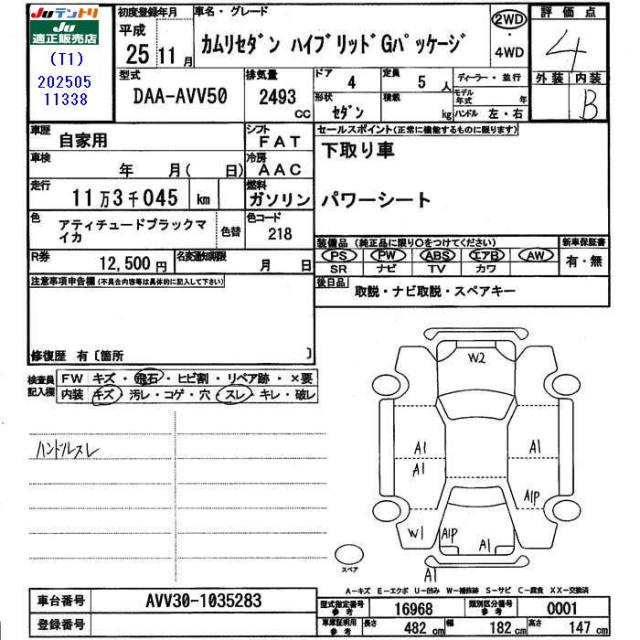 Juテントリ
Ju
適正販売店
(T1)
202505
11338
初度登録年月
平成
25 11月
車名・グレード
カムリセダン ハイブリッドGパッケージ
2WD
・
4WD
評価点
4
外装 内装
B
型式
DAA-AVV50
排気量
2493
cc
ドア 4
定員 5 人
形状 セダン
積載 kg
ディーラー・並行
モデル年式 年
ハンドル 左・右
車歴
自家用
シフト
FAT
車検
年 月( 日)
冷房
AAC
走行
11万3千045 km
燃料
ガソリン
色
アティチュードブラックマイカ
色替
色コード
218
R券
12,500円
名変通知期限
月 日
セールスポイント(正常に機能するものに限ります)
下取り車
パワーシート
装備品 (純正品に限り○をつけてください)
PS PW ABS エアB AW
SR ナビ TV カワ
新車保証書
有・無
後日品
取説・ナビ取説・スペアキー
注意事項申告欄(不具合内容等は具体的に記入して下さい)
修復歴 有〔箇所 〕
検査員
記入欄
FW キズ・飛石・ヒビ割・リペア跡・×要
内装 キズ・汚レ・コゲ・穴・スレ・キレ・破レ
ハンドルスレ
W2
A1
A1
A1
A1P
W1
A1P
A1
A1
スペア
A-キズ E-エクボ U-凹み W-補修跡 S-サビ C-腐食 XX-交換済
車台番号
AVV30-1035283
登録番号
型式指定番号
参考
16968
類別区分番号
参考
0001
車庫証明用
参考
長さ 482cm
幅 182cm
高さ 147cm